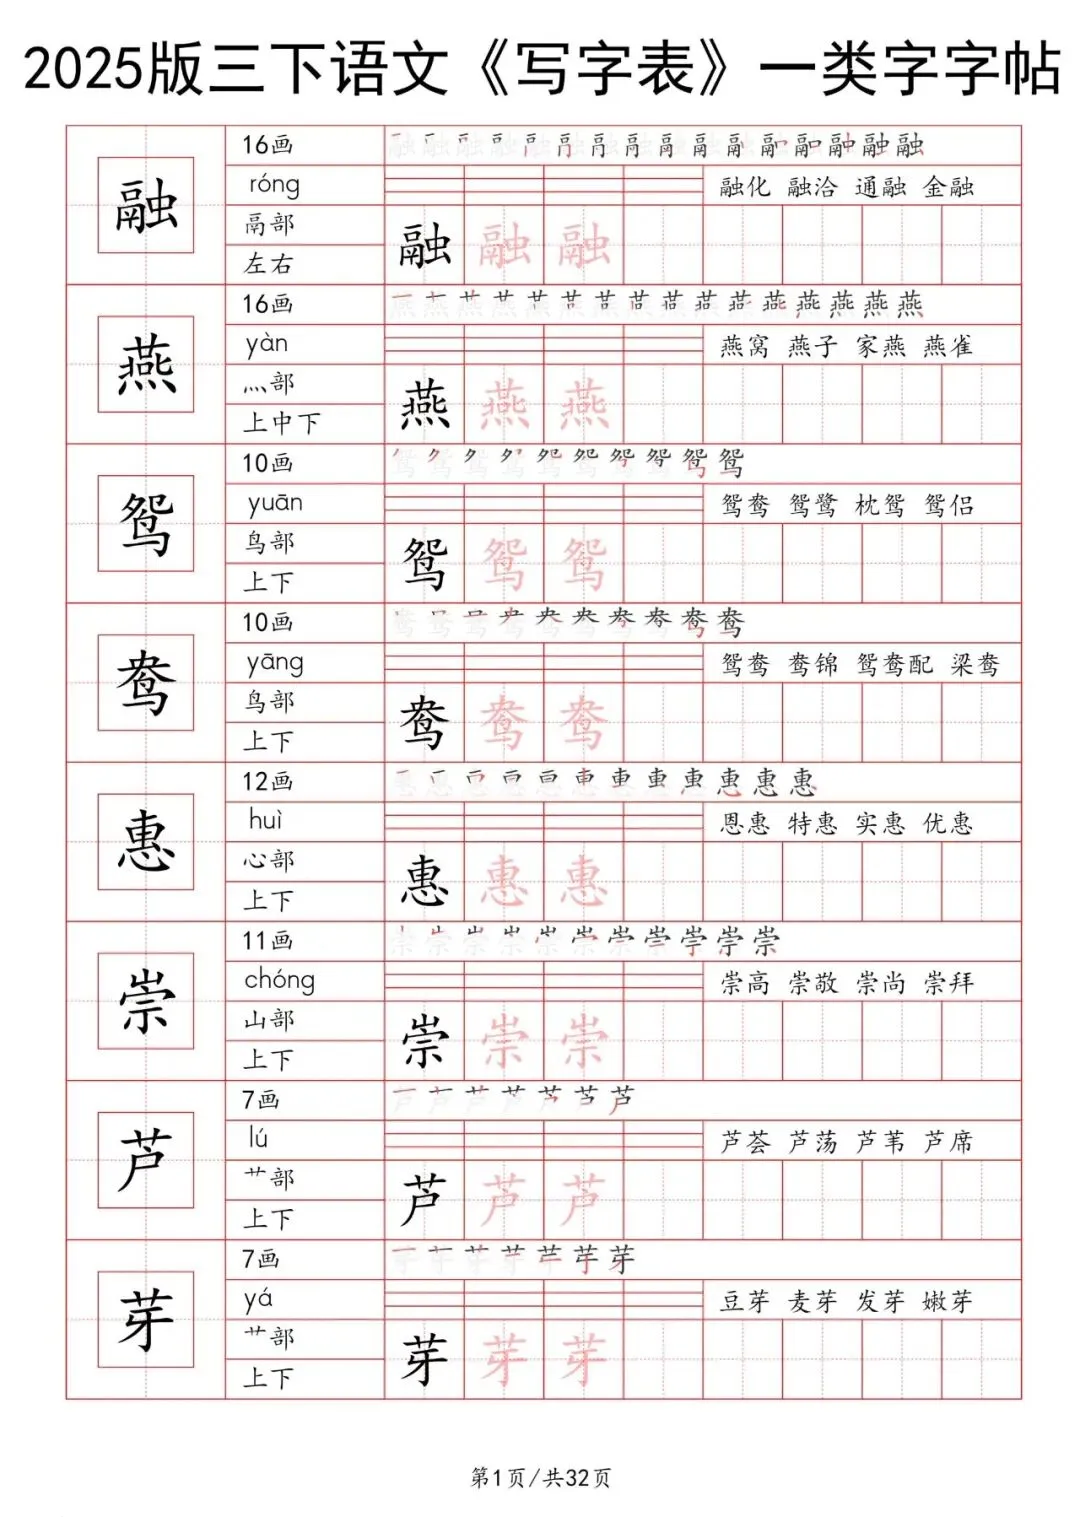 2025版三下语文《写字表》一类字字帖
融
16画
融 融 融 融 融 融 融 融 融 融 融 融 融 融 融 融
róng
融化 融洽 通融 金融
鬲部
左右
融 融 融
燕
16画
燕 燕 燕 燕 燕 燕 燕 燕 燕 燕 燕 燕 燕 燕 燕 燕
yàn
燕窝 燕子 家燕 燕雀
灬部
上中下
燕 燕 燕
鸳
10画
鸳 鸳 鸳 鸳 鸳 鸳 鸳 鸳 鸳 鸳
yuān
鸳鸯 鸳鹭 枕鸳 鸳侣
鸟部
上下
鸳 鸳 鸳
鸯
10画
鸯 鸯 鸯 鸯 鸯 鸯 鸯 鸯 鸯 鸯
yāng
鸳鸯 鸯锦 鸳鸯配 梁鸯
鸟部
上下
鸯 鸯 鸯
惠
12画
惠 惠 惠 惠 惠 惠 惠 惠 惠 惠 惠 惠
huì
恩惠 特惠 实惠 优惠
心部
上下
惠 惠 惠
崇
11画
崇 崇 崇 崇 崇 崇 崇 崇 崇 崇 崇
chóng
崇高 崇敬 崇尚 崇拜
山部
上下
崇 崇 崇
芦
7画
芦 芦 芦 芦 芦 芦 芦
lú
芦荟 芦荡 芦苇 芦席
艹部
上下
芦 芦 芦
芽
7画
芽 芽 芽 芽 芽 芽 芽
yá
豆芽 麦芽 发芽 嫩芽
艹部
上下
芽 芽 芽
第1页/共32页